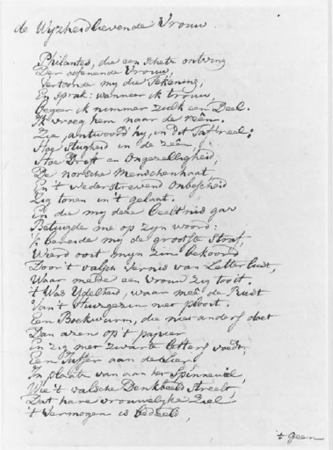 de Wijzheidlievende Vrouw
Philantes, die een schets ontving
Der oefenende Vrouw,
Vertoonde my die Tekening,
En sprak: wanneer ik trouw,
Begeer ik nimmer zulk een Deel.
Ik vroeg hem naar de reên.
Zie, antwoord' hy, in dit Tafreel:
Hoe Stugheid in de zeên,
Hoe Drift en Ongezelligheid,
De norsche Menschenhaat
En 't wederstrevend Onbescheid
Zig tonen in 't gelaat.
En die my deze beeltnis gaf
Betuigde me op zyn woord:
Ik bereide my de grootste Straf,
Wierd ooit myn zin bekoord
Door 't valsch Vernis van Letterlust,
Waar mede een vrouw zig tooit.
't Was IJdelheid, waar met de Rust
Van 't Huisgezin net ploort.
Een Boekwurm, die niet anders doet
Dan azen op 't papier
En zig met zwarte letters voedt;
Een Juffer aan de Lier,
In plaats van aan het Spinnewiel,
Wie 't valsche Denkbeeld streelt,
Dat hare vrouwelyke Ziel
't Vermogen is bedeeld,
't Geen